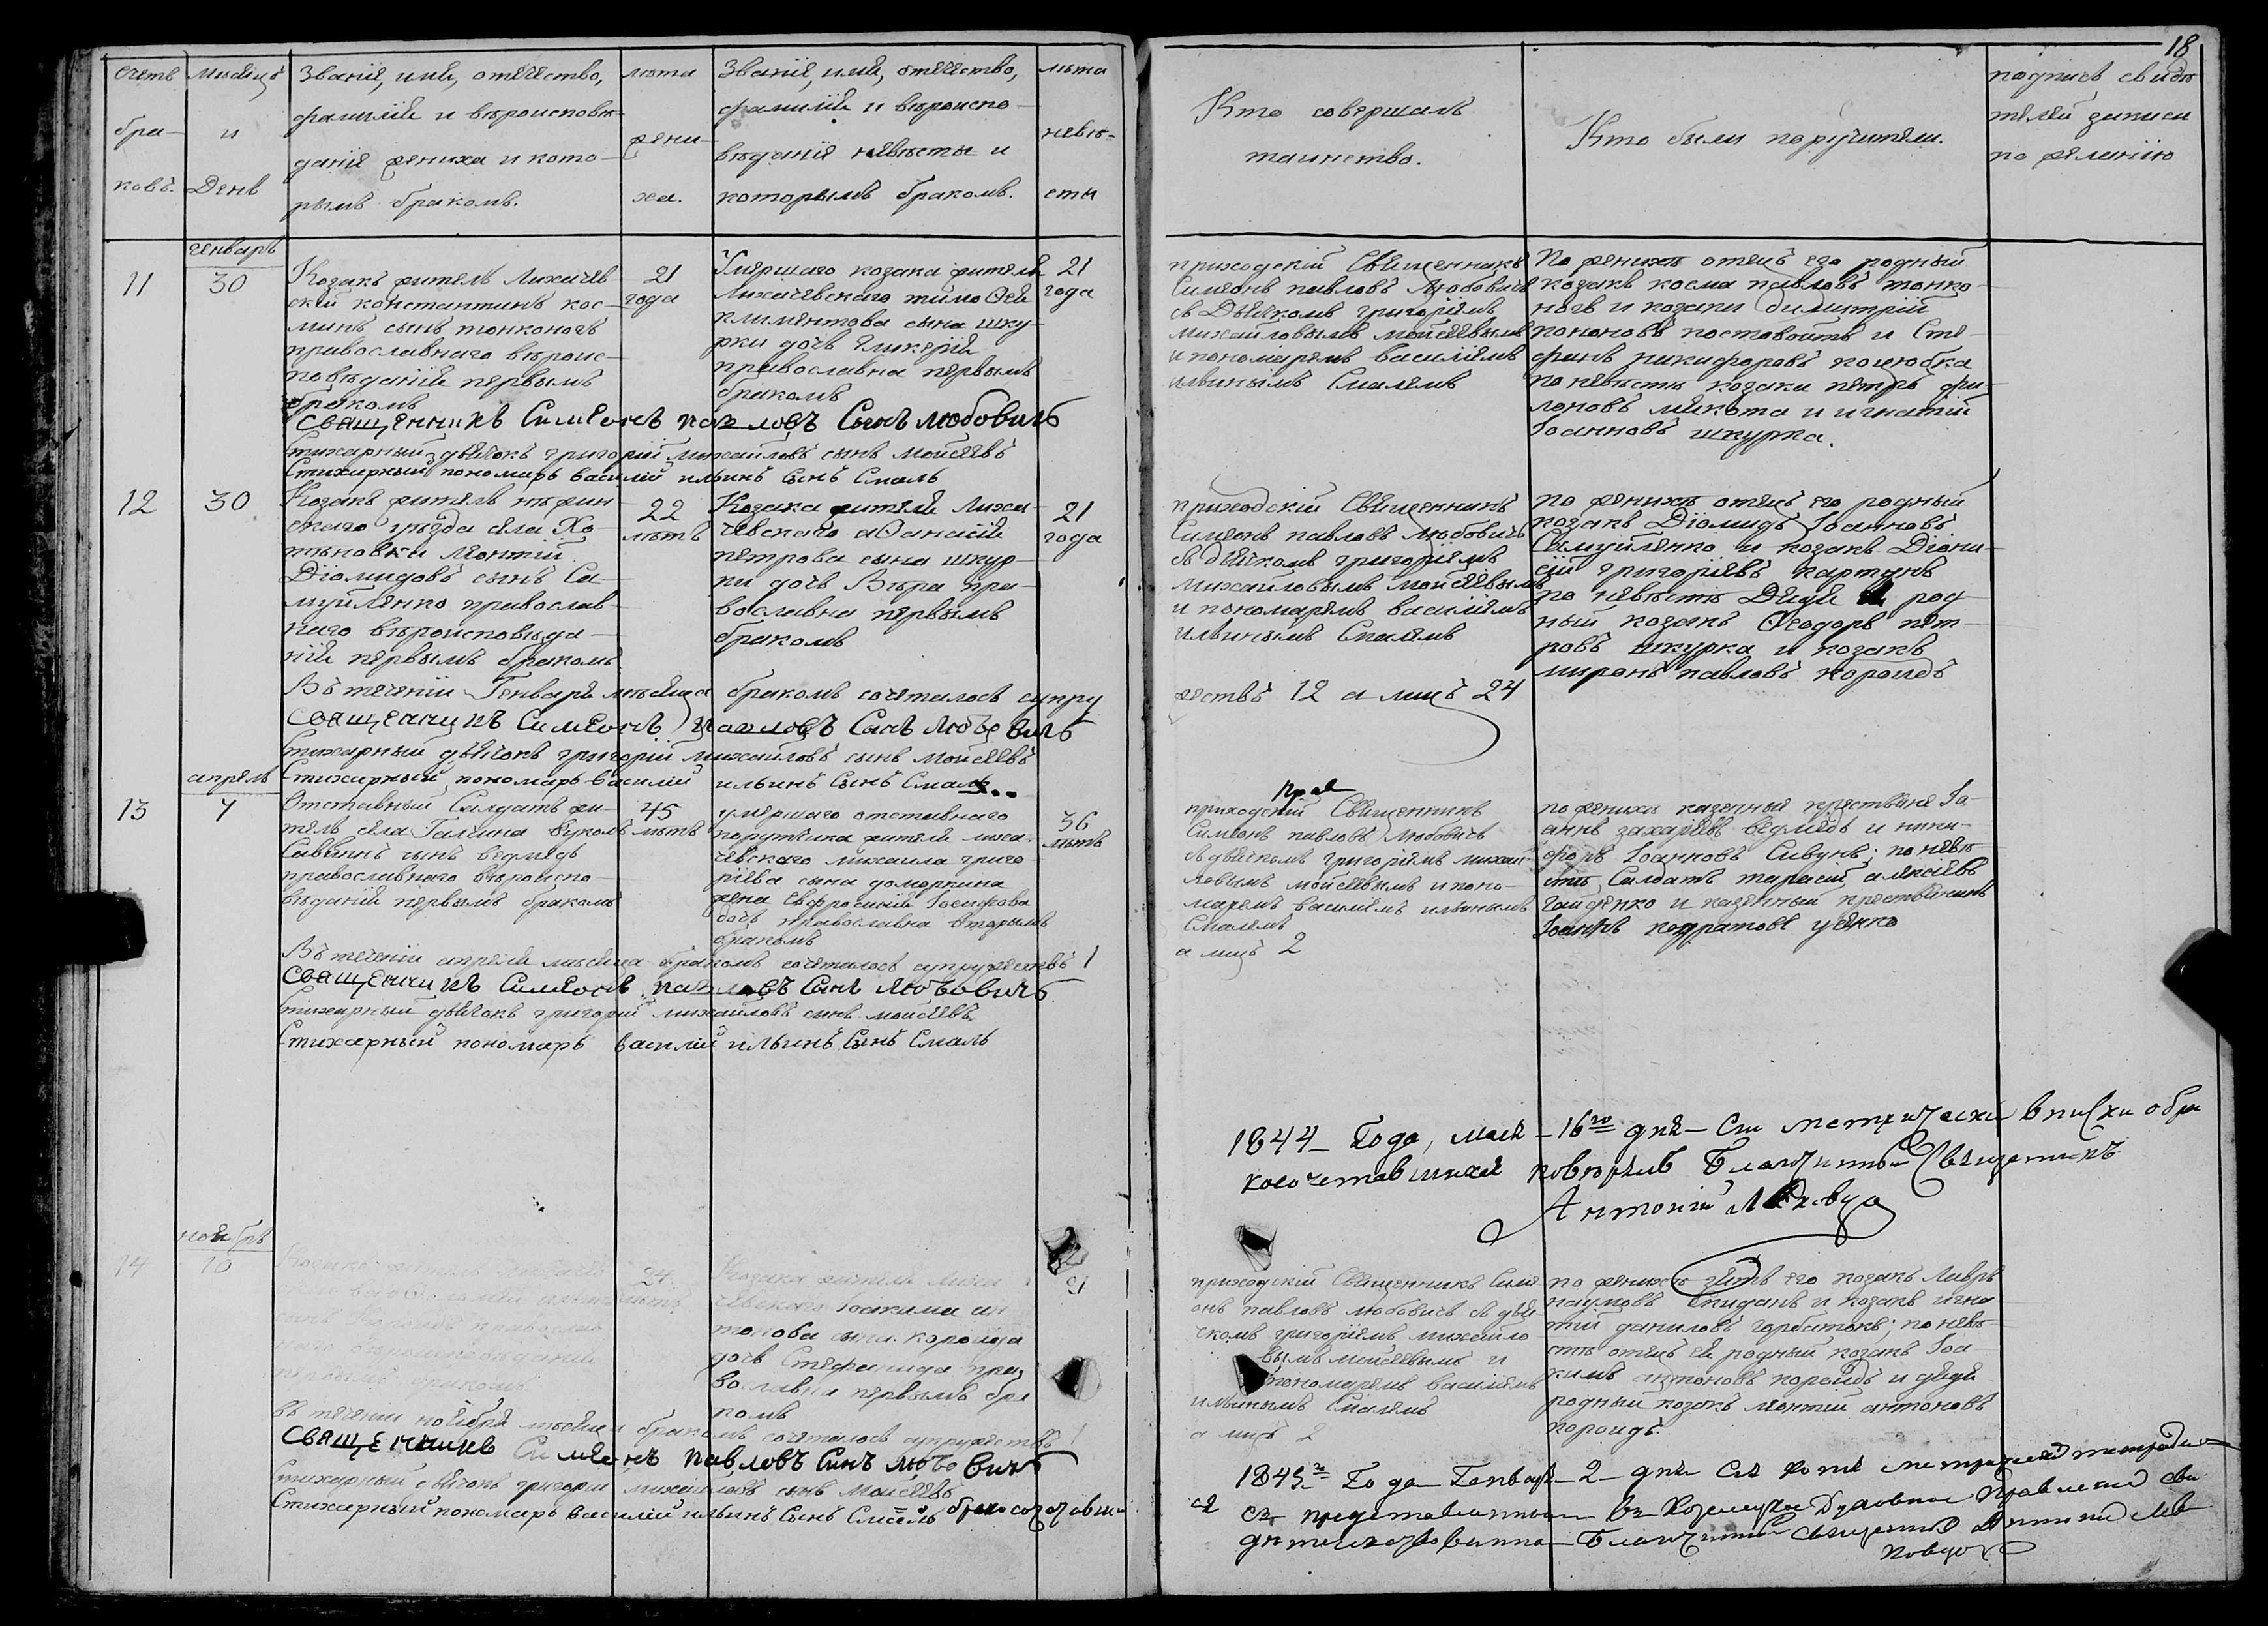 18
Счетъ бра- ковъ.
мѣсяцъ и День
Званіе, имя, отечество,
фамилія и вѣроисповѣ-
даніе жениха и кото-
рымъ бракомъ.
лѣта жени- ха.
Званіе, имя, отечество,
фамилія и вѣроиспо-
вѣданіе невѣсты и
которымъ бракомъ.
лѣта невѣ- сты
Кто совершалъ
таинство.
Кто были поручители.
подпись свидѣ
телей записи
по желанію
генварь
11
30
Козакъ житель Лихачев
скій константинъ кос-
минъ сынъ тонконогъ
православнаго вѣроис-
повѣданія первымъ
бракомъ
21
года
Умершаго козака жителя
Лихачевскаго тимоѳея
климентова сына шку-
рки дочь гликерія
православна первымъ
бракомъ
21
года
приходскій Священникъ
Симеонъ павловъ Любовичъ
съ Дьячкомъ григоріемъ
михайловымъ мойсеевымъ
и пономаремъ василіемъ
ильинымъ Смалемъ
По женихѣ отецъ его родный
козакъ косма павловъ тонко-
ногъ и козаки димитрій
кононовъ постовойтъ и Сте-
фанъ никифоровъ коцюбка
по невѣстѣ козаки петръ фи-
лоновъ мякота и игнатій
Іоанновъ шкурка.
Священникъ Симеонъ павловъ Сынъ Любовичъ
Стихарный дьячокъ григорій михайловъ сынъ мойсеевъ
Стихарный пономарь василій ильинъ сынъ Смаль
12
30
Козакъ житель нѣжин
скаго уѣзда села Хо-
тыновки леонтій
Діомидовъ сынъ Са-
муйленко православ-
наго вѣроисповѣда-
нія первымъ бракомъ
22
лѣтъ
Козака жителя Лиха-
чевскаго аѳанасія
петрова сына шкур-
ки дочь Вѣра пра-
вославна первымъ
бракомъ
21
года
приходскій Священникъ
Симеонъ павловъ Любовичъ
съ дьячкомъ григоріемъ
михайловымъ мойсеевымъ
и пономаремъ василіемъ
ильинымъ Смалемъ
по женихѣ отецъ его родный
козакъ Діомидъ Іоанновъ
Самуйленко и козакъ Діони-
сій григоріевъ картунъ
по невѣстѣ Дядя род-
ный козакъ Ѳеодоръ пет-
ровъ шкурка и козакъ
миронъ павловъ короидъ
Въ теченіи Генваря мѣсяца бракомъ сочеталось супру
жествъ 12 а лицъ 24
Священникъ Симеонъ павловъ Сынъ Любовичъ
Стихарный дьячокъ григорій михайловъ сынъ мойсеевъ
Стихарный пономарь василій ильинъ Сынъ Смаль
апрель
13
7
Отставный Солдатъ жи-
тель села Галчина вуколъ
Саввинъ сынъ ведмедь
православнаго вѣроиспо-
вѣданія первымъ бракомъ
45
лѣтъ
умершаго отставнаго
порутчика жителя лиха-
чевскаго михаила григо
ріева сына доморкина
жена Евфросинія Іосифова
дочь православна вторымъ
бракомъ
36
лѣтъ
приходскій Священникъ
Симеонъ павловъ Любовичъ
съ дьячкомъ григоріемъ михай-
ловымъ мойсеевымъ и поно-
маремъ василіемъ ильинымъ
Смалемъ
по женихѣ казенный крестьяне Іо-
аннъ захаріевъ ведмедь и ники-
форъ Іоанновъ Сивунъ; по невѣ
стѣ Солдатъ тарасій алексіевъ
гайденко и казенный крестьянинъ
Іоаннъ кодратовъ уенко
Въ теченіи апреля мѣсяца бракомъ сочеталось супружествъ 1
а лицъ 2
Священникъ Симеонъ павловъ Сынъ Любовичъ
Стихарный дьячокъ григорій михайловъ сынъ мойсеевъ
Стихарный пономарь василій ильинъ Сынъ Смаль
1844 Года, мая 16го дня Сіи метрически
повѣрялъ Благочинный Священникъ
Антоній
ноябрь
14
24
лѣтъ
Козака жителя лиха
чевскаго Іоакима ан
тонова сына короида
дочь Стефанида пра
вославна первымъ бра
комъ
приходскій Священникъ Симе
онъ павловъ любовичъ съ дья
чкомъ григоріемъ михайло
вымъ мойсеевымъ и
пономаремъ василіемъ
ильинымъ Смалемъ
по женихѣ зять его козакъ Лавръ
наумовъ Скиданъ и козакъ игна
тій даниловъ горбатокъ; по невѣ-
стѣ отецъ ея родный козакъ Іоа-
кимъ антоновъ короидъ и дядя
родный козакъ леонтій антоновъ
короидъ.
въ теченіи ноября мѣсяца бракомъ сочеталось супружествъ 1
а лицъ 2
Священникъ Симеонъ павловъ Сынъ любовичъ
Стихарный дьячокъ григорій михайловъ сынъ мойсеевъ
Стихарный пономарь василій ильинъ Сынъ Смаль
1845 Года Генваря 2 дня
Духовное Правленіе
Благочинный Священникъ Антоній